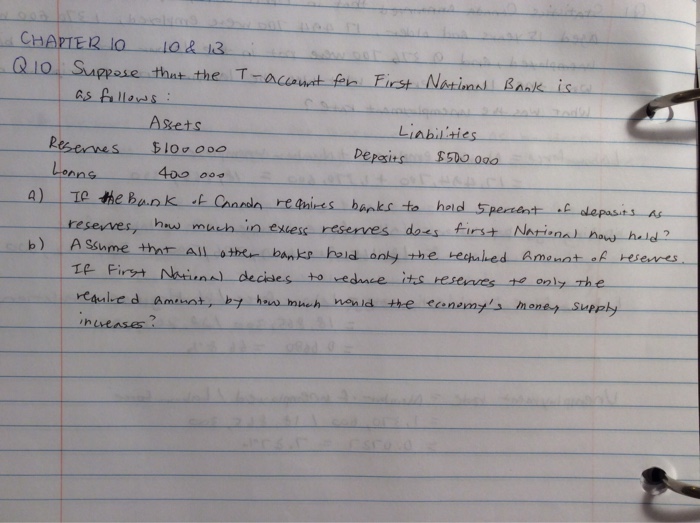 CHAPTER 10 10 & 13
Q10. Suppose that the T-account for First National Bank is
as follows:
Assets Liabilities
Reserves $100 000 Deposits $500 000
Loans 400 000
a) If the Bank of Canada requires banks to hold 5 percent of deposits as
reserves, how much in excess reserves does first National now hold?
b) Assume that all other banks hold only the required amount of reserves.
If First National decides to reduce its reserves to only the
required amount, by how much would the economy's money supply
increases?